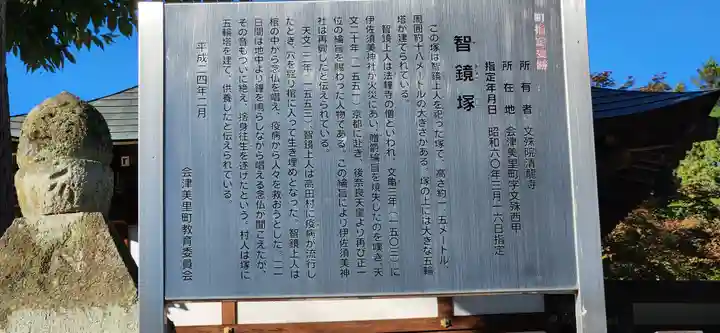 町指定史跡
所有者 文殊院清龍寺
所在地 会津美里町字文殊西甲
指定年月日 昭和六〇年三月一六日指定
智鏡塚
この塚は智鏡上人を祀った塚で、高さ約一・五メートル、
周囲約十八メートルの大きさがある。塚の上には大きな五輪
塔が建てられている。
智鏡上人は法幢寺の僧といわれ、文亀三年(一五〇三)に
伊佐須美神社が火災にあい、贈爵綸旨を焼失したのを嘆き、天
文二十年(一五五一)京都に赴き、後奈良天皇より再び正一
位の綸旨を賜わった人物である。この綸旨により伊佐須美神
社は再興したと伝えられている。
天文二二年(一五五三)、智鏡上人は高田村に疫病が流行し
たとき、穴を掘り棺に入って生き埋めとなった。智鏡上人は
棺の中から念仏を唱え、疫病から人々を救おうとした。二一
日間は地中より鐘を鳴らしながら唱える念仏が聞こえたが、
その音もついに絶え、捨身往生を遂げたという。村人は塚に
五輪塔を建て、供養したと伝えられている。
平成二四年二月
会津美里町教育委員会